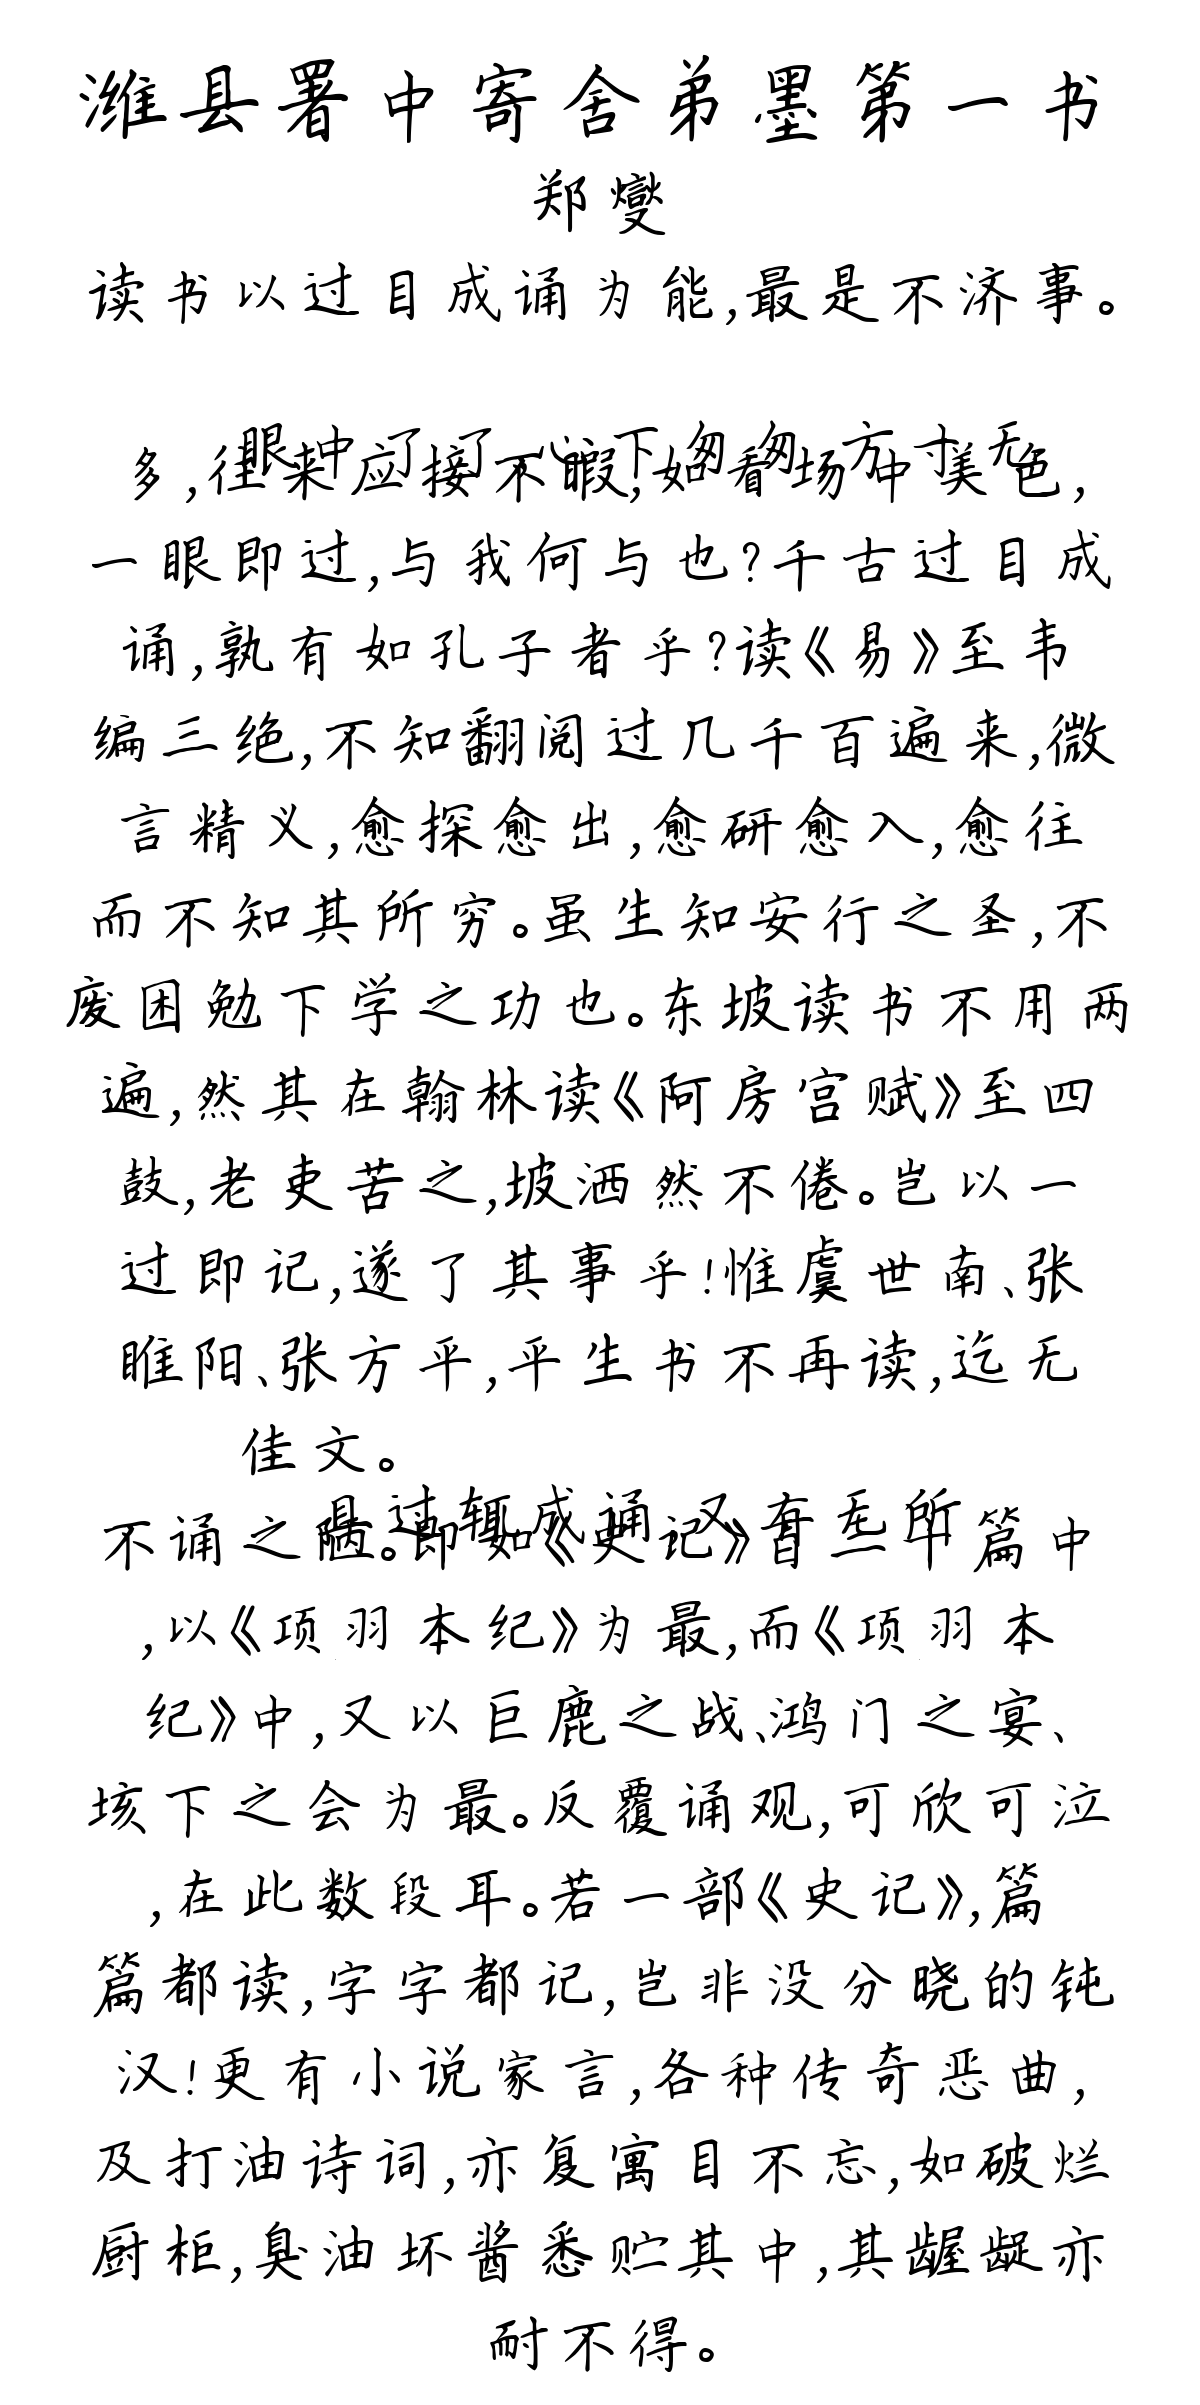 潍县署中寄舍弟墨第一书
郑燮
读书以过目成诵为能,最是不济事。
眼中了了心下匆匆方寸无
多,往来应接不暇,如看场中美色,
一眼即过,与我何与也?千古过目成
诵,孰有如孔子者乎?读《易》至韦
编三绝,不知翻阅过几千百遍来,微
言精义,愈探愈出,愈研愈入,愈往
而不知其所穷。虽生知安行之圣,不
废困勉下学之功也。东坡读书不用两
遍,然其在翰林读《阿房宫赋》至四
鼓,老吏苦之,坡洒然不倦。岂以一
过即记,遂了其事乎!惟虞世南、张
睢阳、张方平,平生书不再读,迄无
佳文。
且过辄成诵又有无所
不诵之陋。即如《史记》百三十篇中
,以《项羽本纪》为最,而《项羽本
纪》中,又以巨鹿之战、鸿门之宴、
垓下之会为最。反覆诵观,可欣可泣
,在此数段耳。若一部《史记》,篇
篇都读,字字都记,岂非没分晓的钝
汉!更有小说家言,各种传奇恶曲,
及打油诗词,亦复寓目不忘,如破烂
厨柜,臭油坏酱悉贮其中,其龌龊亦
耐不得。